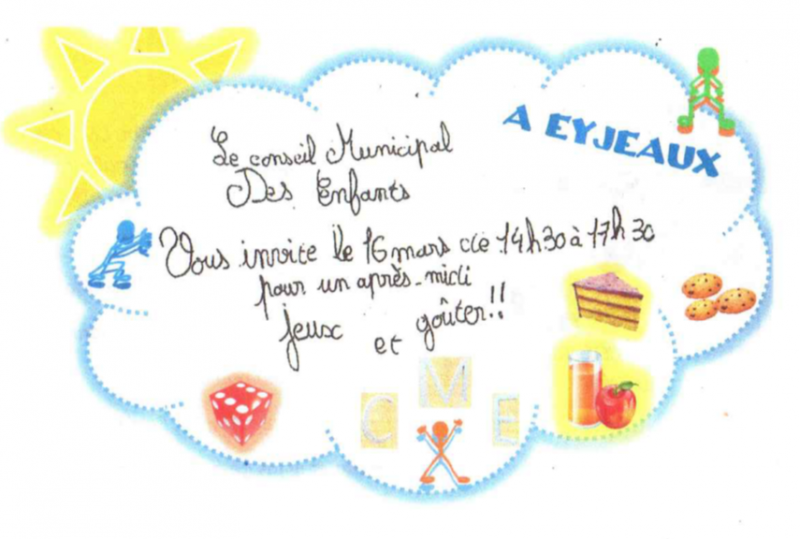 A EYJEAUX
Le conseil Municipal
Des Enfants
Vous invite le 16 mars de 14h30 à 17h30
pour un après-midi
jeux et goûter!!
C M E